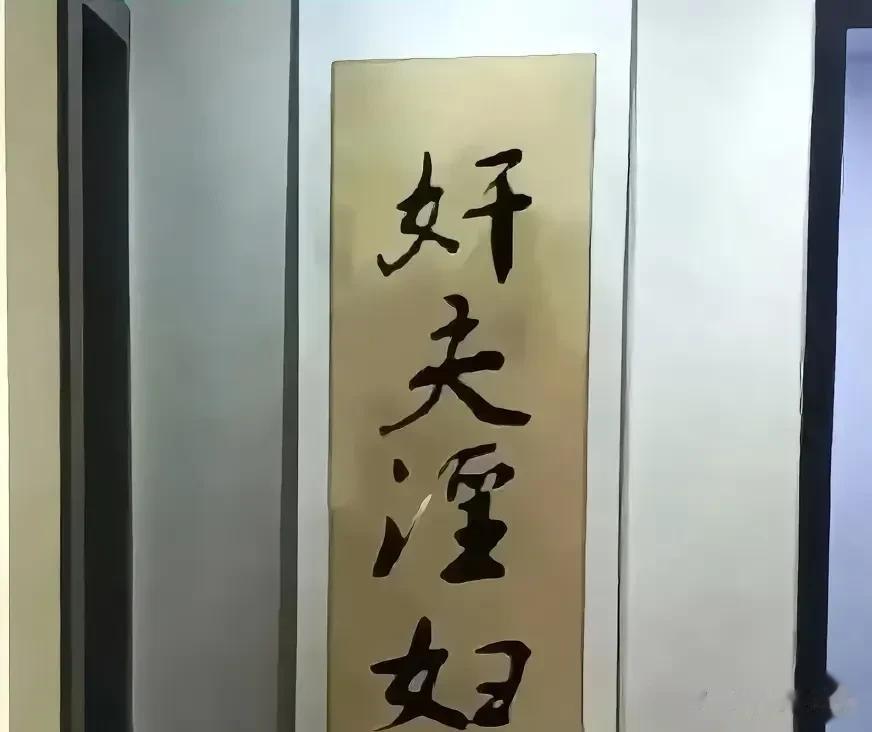 奸夫淫妇